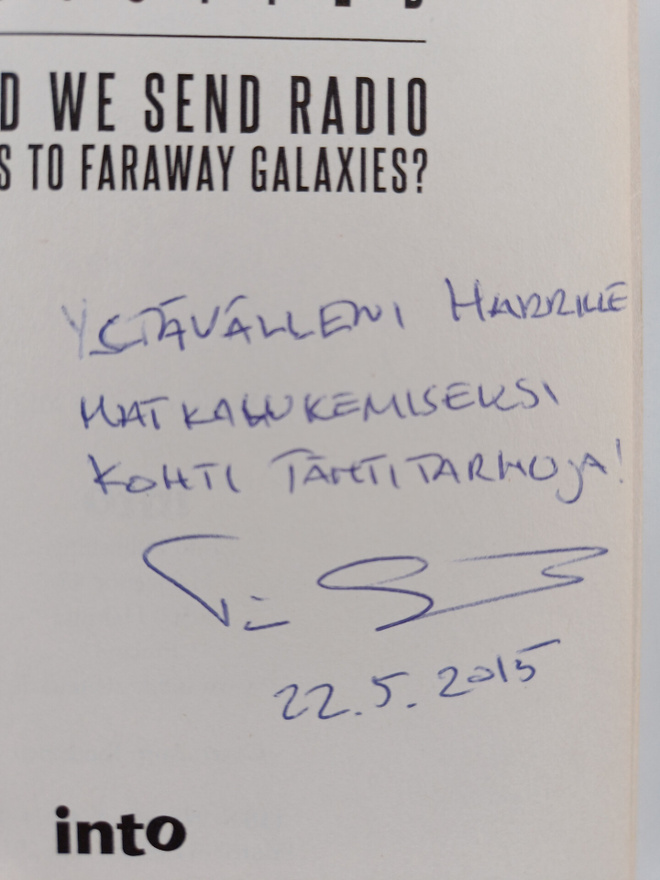 D WE SEND RADIO
S TO FARAWAY GALAXIES?
YSTÄVÄLLENI HARRILLE
MATKALUKEMISEKSI
KOHTI TÄHTITARHOJA!
22.5.2015
into